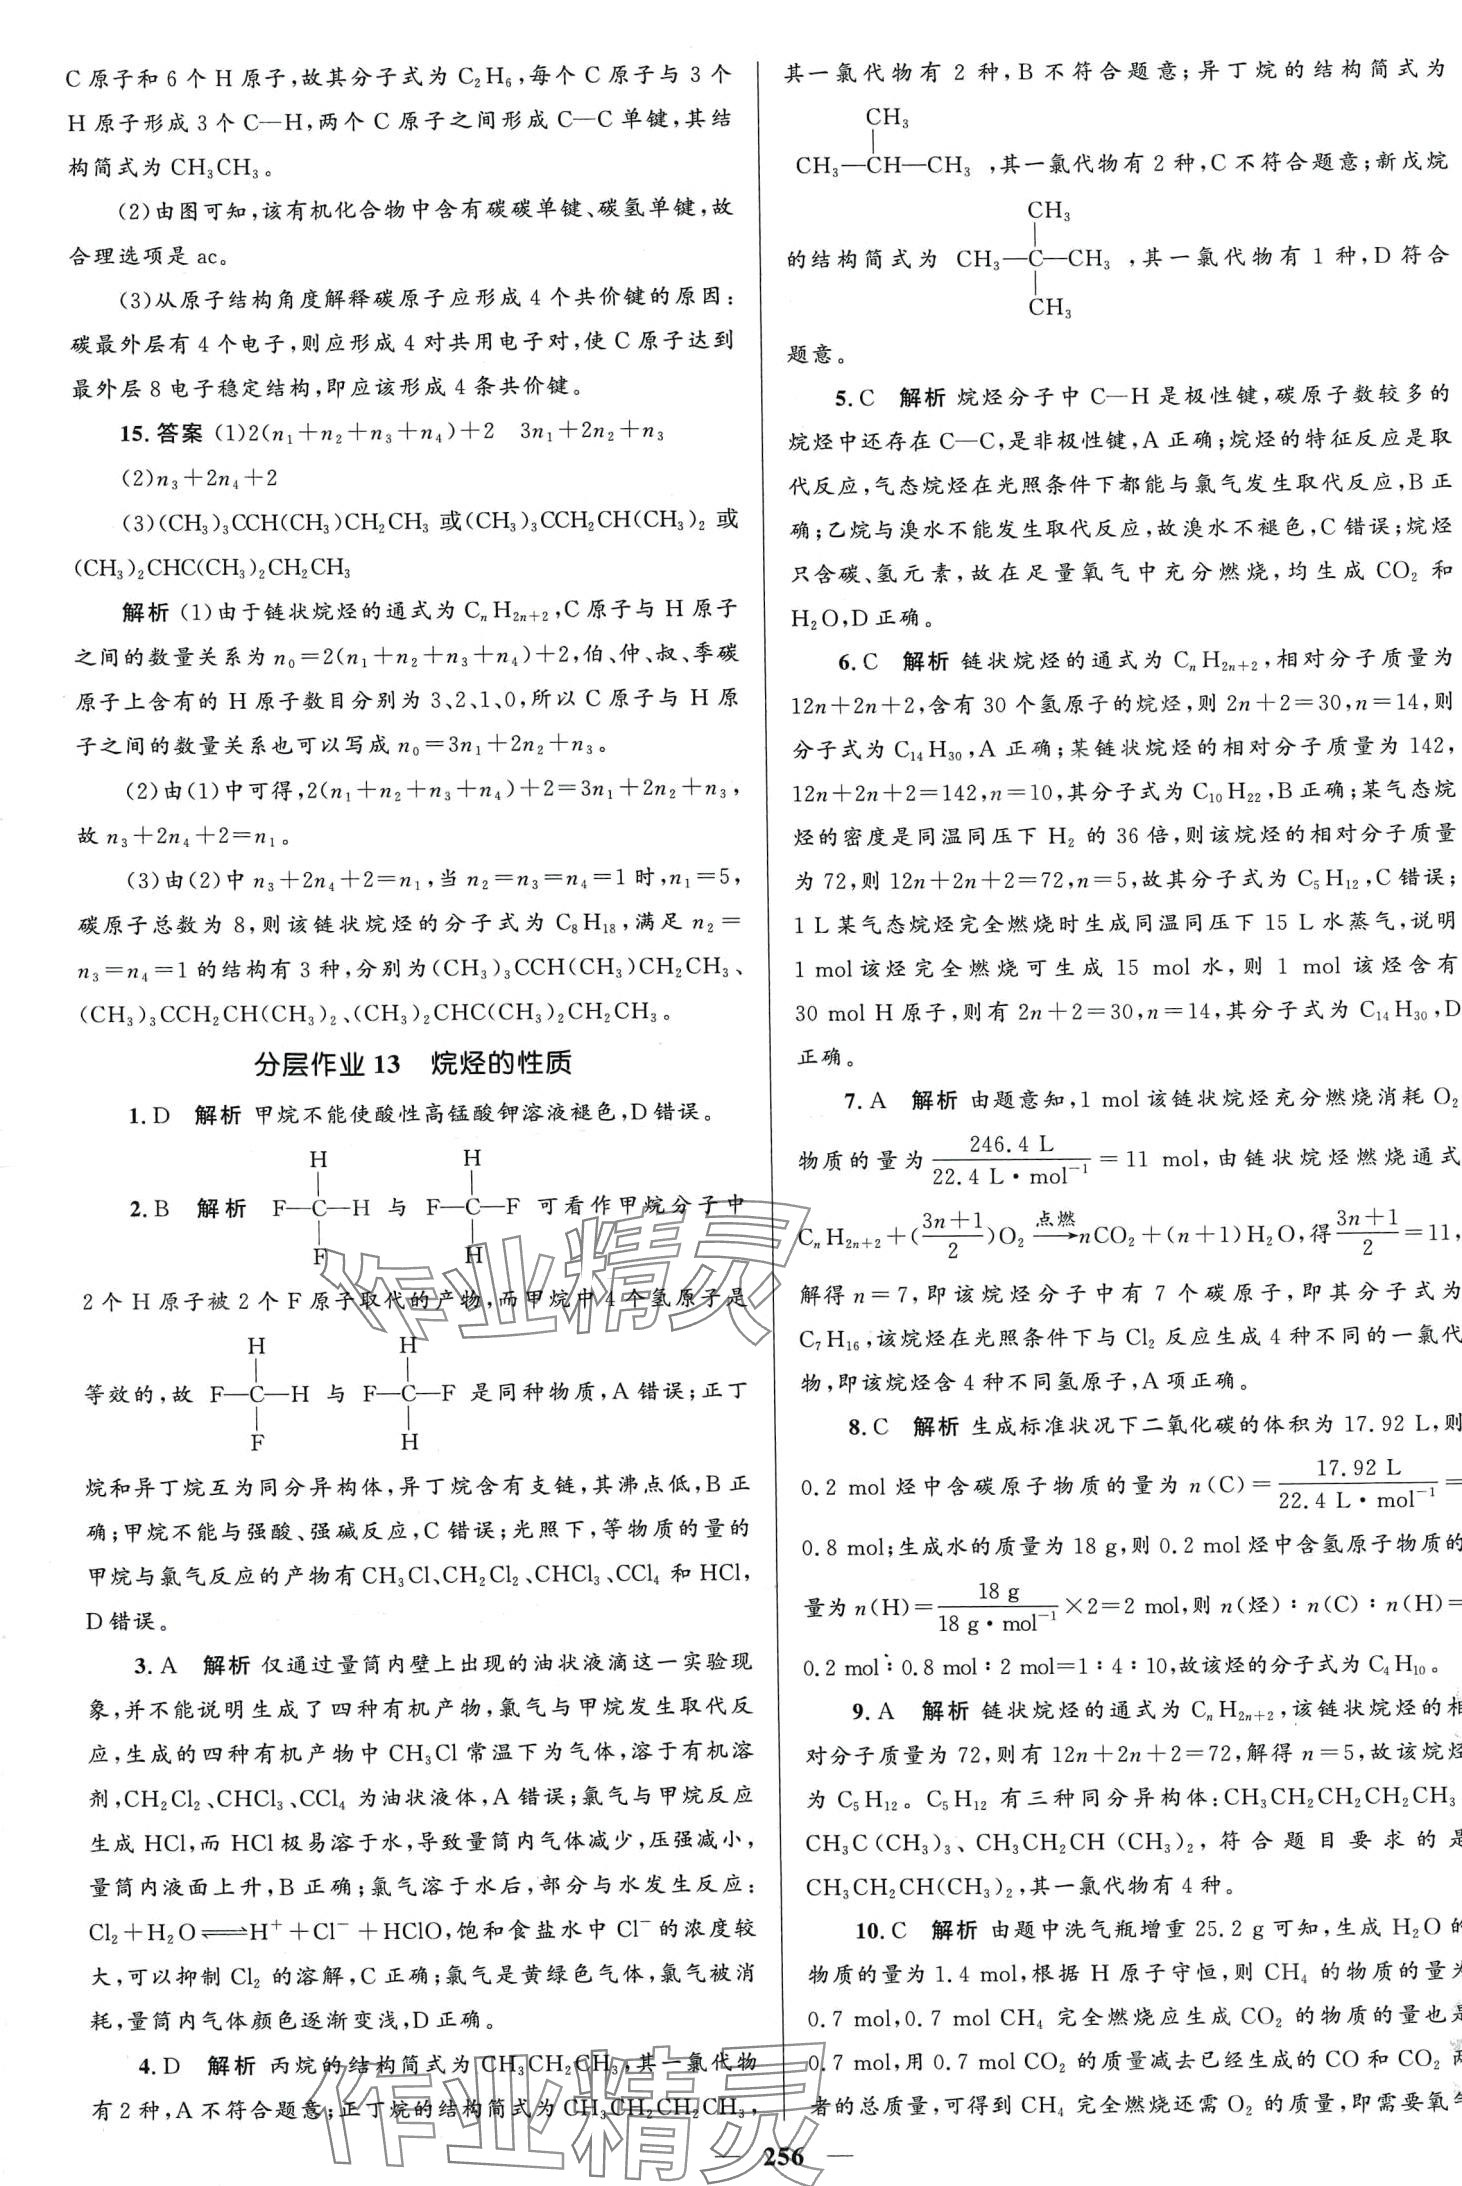 C 原子和 6 个 H 原子,故其分子式为 C₂H₆,每个 C 原子与 3 个
H 原子形成 3 个 C—H,两个 C 原子之间形成 C—C 单键,其结
构简式为 CH₃CH₃。
(2)由图可知,该有机化合物中含有碳碳单键、碳氢单键,故
合理选项是 ac。
(3)从原子结构角度解释碳原子应形成 4 个共价键的原因:
碳最外层有 4 个电子,则应形成 4 对共用电子对,使 C 原子达到
最外层 8 电子稳定结构,即应该形成 4 条共价键。
15.答案 (1)2(n₁+n₂+n₃+n₄)+2 3n₁+2n₂+n₃
(2)n₃+2n₄+2
(3)(CH₃)₃CCH(CH₃)CH₂CH₃ 或(CH₃)₃CCH₂CH(CH₃)₂ 或
(CH₃)₂CHC(CH₃)₂CH₂CH₃
解析 (1)由于链状烷烃的通式为 CₙH₂ₙ₊₂,C 原子与 H 原子
之间的数量关系为 n₀=2(n₁+n₂+n₃+n₄)+2,伯、仲、叔、季碳
原子上含有的 H 原子数目分别为 3、2、1、0,所以 C 原子与 H 原
子之间的数量关系也可以写成 n₀=3n₁+2n₂+n₃。
(2)由(1)中可得,2(n₁+n₂+n₃+n₄)+2=3n₁+2n₂+n₃,
故 n₃+2n₄+2=n₁。
(3)由(2)中 n₃+2n₄+2=n₁,当 n₂=n₃=n₄=1 时,n₁=5,
碳原子总数为 8,则该链状烷烃的分子式为 C₈H₁₈,满足 n₂=
n₃=n₄=1 的结构有 3 种,分别为(CH₃)₃CCH(CH₃)CH₂CH₃、
(CH₃)₃CCH₂CH(CH₃)₂、(CH₃)₂CHC(CH₃)₂CH₂CH₃。
分层作业 13 烷烃的性质
1.D 解析 甲烷不能使酸性高锰酸钾溶液褪色,D 错误。
H H
2.B 解析 F—C—H 与 F—C—F 可看作甲烷分子中
F H
2 个 H 原子被 2 个 F 原子取代的产物,而甲烷中 4 个氢原子是
H H
等效的,故 F—C—H 与 F—C—F 是同种物质,A 错误;正丁
F H
烷和异丁烷互为同分异构体,异丁烷含有支链,其沸点低,B 正
确;甲烷不能与强酸、强碱反应,C 错误;光照下,等物质的量的
甲烷与氯气反应的产物有 CH₃Cl、CH₂Cl₂、CHCl₃、CCl₄ 和 HCl,
D 错误。
3.A 解析 仅通过量筒内壁上出现的油状液滴这一实验现
象,并不能说明生成了四种有机产物,氯气与甲烷发生取代反
应,生成的四种有机产物中 CH₃Cl 常温下为气体,溶于有机溶
剂,CH₂Cl₂、CHCl₃、CCl₄ 为油状液体,A 错误;氯气与甲烷反应
生成 HCl,而 HCl 极易溶于水,导致量筒内气体减少,压强减小,
量筒内液面上升,B 正确;氯气溶于水后,部分与水发生反应:
Cl₂+H₂O⇌H⁺+Cl⁻+HClO,饱和食盐水中 Cl⁻ 的浓度较
大,可以抑制 Cl₂ 的溶解,C 正确;氯气是黄绿色气体,氯气被消
耗,量筒内气体颜色逐渐变浅,D 正确。
4.D 解析 丙烷的结构简式为 CH₃CH₂CH₃,其一氯代物
有 2 种,A 不符合题意;正丁烷的结构简式为 CH₃CH₂CH₂CH₃,
其一氯代物有 2 种,B 不符合题意;异丁烷的结构简式为
CH₃
CH₃—CH—CH₃ ,其一氯代物有 2 种,C 不符合题意;新戊烷
CH₃
的结构简式为 CH₃—C—CH₃ ,其一氯代物有 1 种,D 符合
CH₃
题意。
5.C 解析 烷烃分子中 C—H 是极性键,碳原子数较多的
烷烃中还存在 C—C,是非极性键,A 正确;烷烃的特征反应是取
代反应,气态烷烃在光照条件下都能与氯气发生取代反应,B 正
确;乙烷与溴水不能发生取代反应,故溴水不褪色,C 错误;烷烃
只含碳、氢元素,故在足量氧气中充分燃烧,均生成 CO₂ 和
H₂O,D 正确。
6.C 解析 链状烷烃的通式为 CₙH₂ₙ₊₂,相对分子质量为
12n+2n+2,含有 30 个氢原子的烷烃,则 2n+2=30,n=14,则
分子式为 C₁₄H₃₀,A 正确;某链状烷烃的相对分子质量为 142,
12n+2n+2=142,n=10,其分子式为 C₁₀H₂₂,B 正确;某气态烷
烃的密度是同温同压下 H₂ 的 36 倍,则该烷烃的相对分子质量
为 72,则 12n+2n+2=72,n=5,故其分子式为 C₅H₁₂,C 错误;
1 L 某气态烷烃完全燃烧时生成同温同压下 15 L 水蒸气,说明
1 mol 该烃完全燃烧可生成 15 mol 水,则 1 mol 该烃含有
30 mol H 原子,则有 2n+2=30,n=14,其分子式为 C₁₄H₃₀,D
正确。
7.A 解析 由题意知,1 mol 该链状烷烃充分燃烧消耗 O₂
物质的量为 246.4 L/22.4 L·mol⁻¹ =11 mol,由链状烷烃燃烧通式
CₙH₂ₙ₊₂+((3n+1)/2)O₂ 点燃→ nCO₂+(n+1)H₂O,得 (3n+1)/2=11,
解得 n=7,即该烷烃分子中有 7 个碳原子,即其分子式为
C₇H₁₆,该烷烃在光照条件下与 Cl₂ 反应生成 4 种不同的一氯代
物,即该烷烃含 4 种不同氢原子,A 项正确。
8.C 解析 生成标准状况下二氧化碳的体积为 17.92 L,则
0.2 mol 烃中含碳原子物质的量为 n(C)= 17.92 L/22.4 L·mol⁻¹ =
0.8 mol;生成水的质量为 18 g,则 0.2 mol 烃中含氢原子物质的
量为 n(H)= 18 g/18 g·mol⁻¹ ×2=2 mol,则 n(烃)∶n(C)∶n(H)=
0.2 mol∶0.8 mol∶2 mol=1∶4∶10,故该烃的分子式为 C₄H₁₀。
9.A 解析 链状烷烃的通式为 CₙH₂ₙ₊₂,该链状烷烃的相
对分子质量为 72,则有 12n+2n+2=72,解得 n=5,故该烷烃
为 C₅H₁₂。C₅H₁₂ 有三种同分异构体:CH₃CH₂CH₂CH₂CH₃
CH₃C(CH₃)₃、CH₃CH₂CH(CH₃)₂,符合题目要求的是
CH₃CH₂CH(CH₃)₂,其一氯代物有 4 种。
10.C 解析 由题中洗气瓶增重 25.2 g 可知,生成 H₂O 的
物质的量为 1.4 mol,根据 H 原子守恒,则 CH₄ 的物质的量为
0.7 mol,0.7 mol CH₄ 完全燃烧应生成 CO₂ 的物质的量也是
0.7 mol,用 0.7 mol CO₂ 的质量减去已经生成的 CO 和 CO₂ 两
者的总质量,可得到 CH₄ 完全燃烧还需 O₂ 的质量,即需要氧气
256
作业精灵
作业精灵